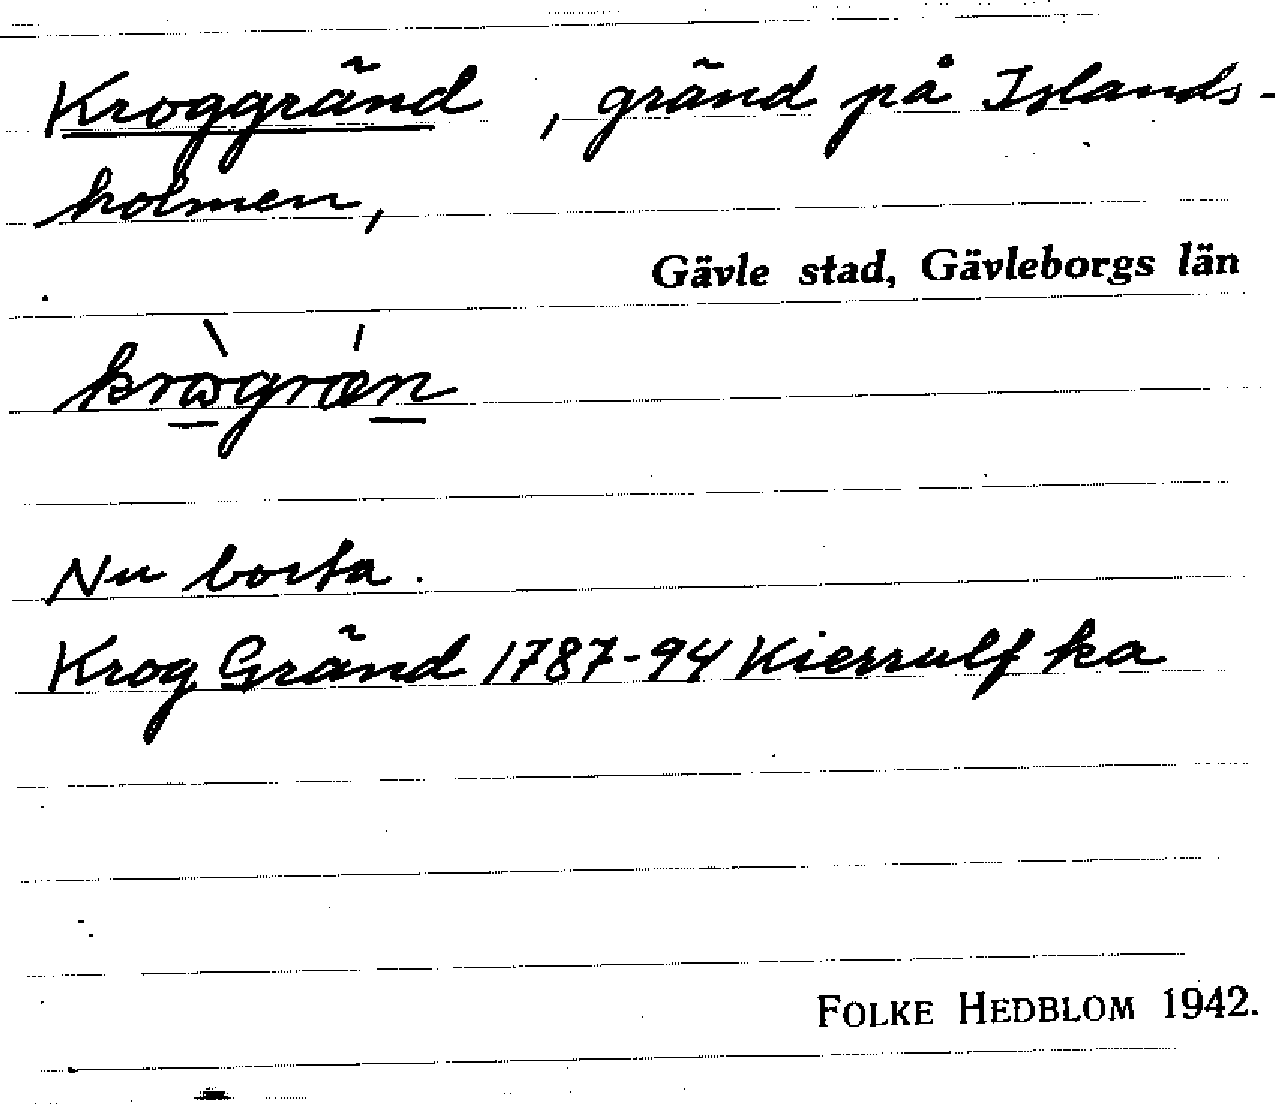 Kroggränd, gränd på Islands-
holmen,
Gävle stad, Gävleborgs län
Nu borta.
Krog Gränd 1787-94 Kierrulf ka
FOLKE HEDBLOM 1942.